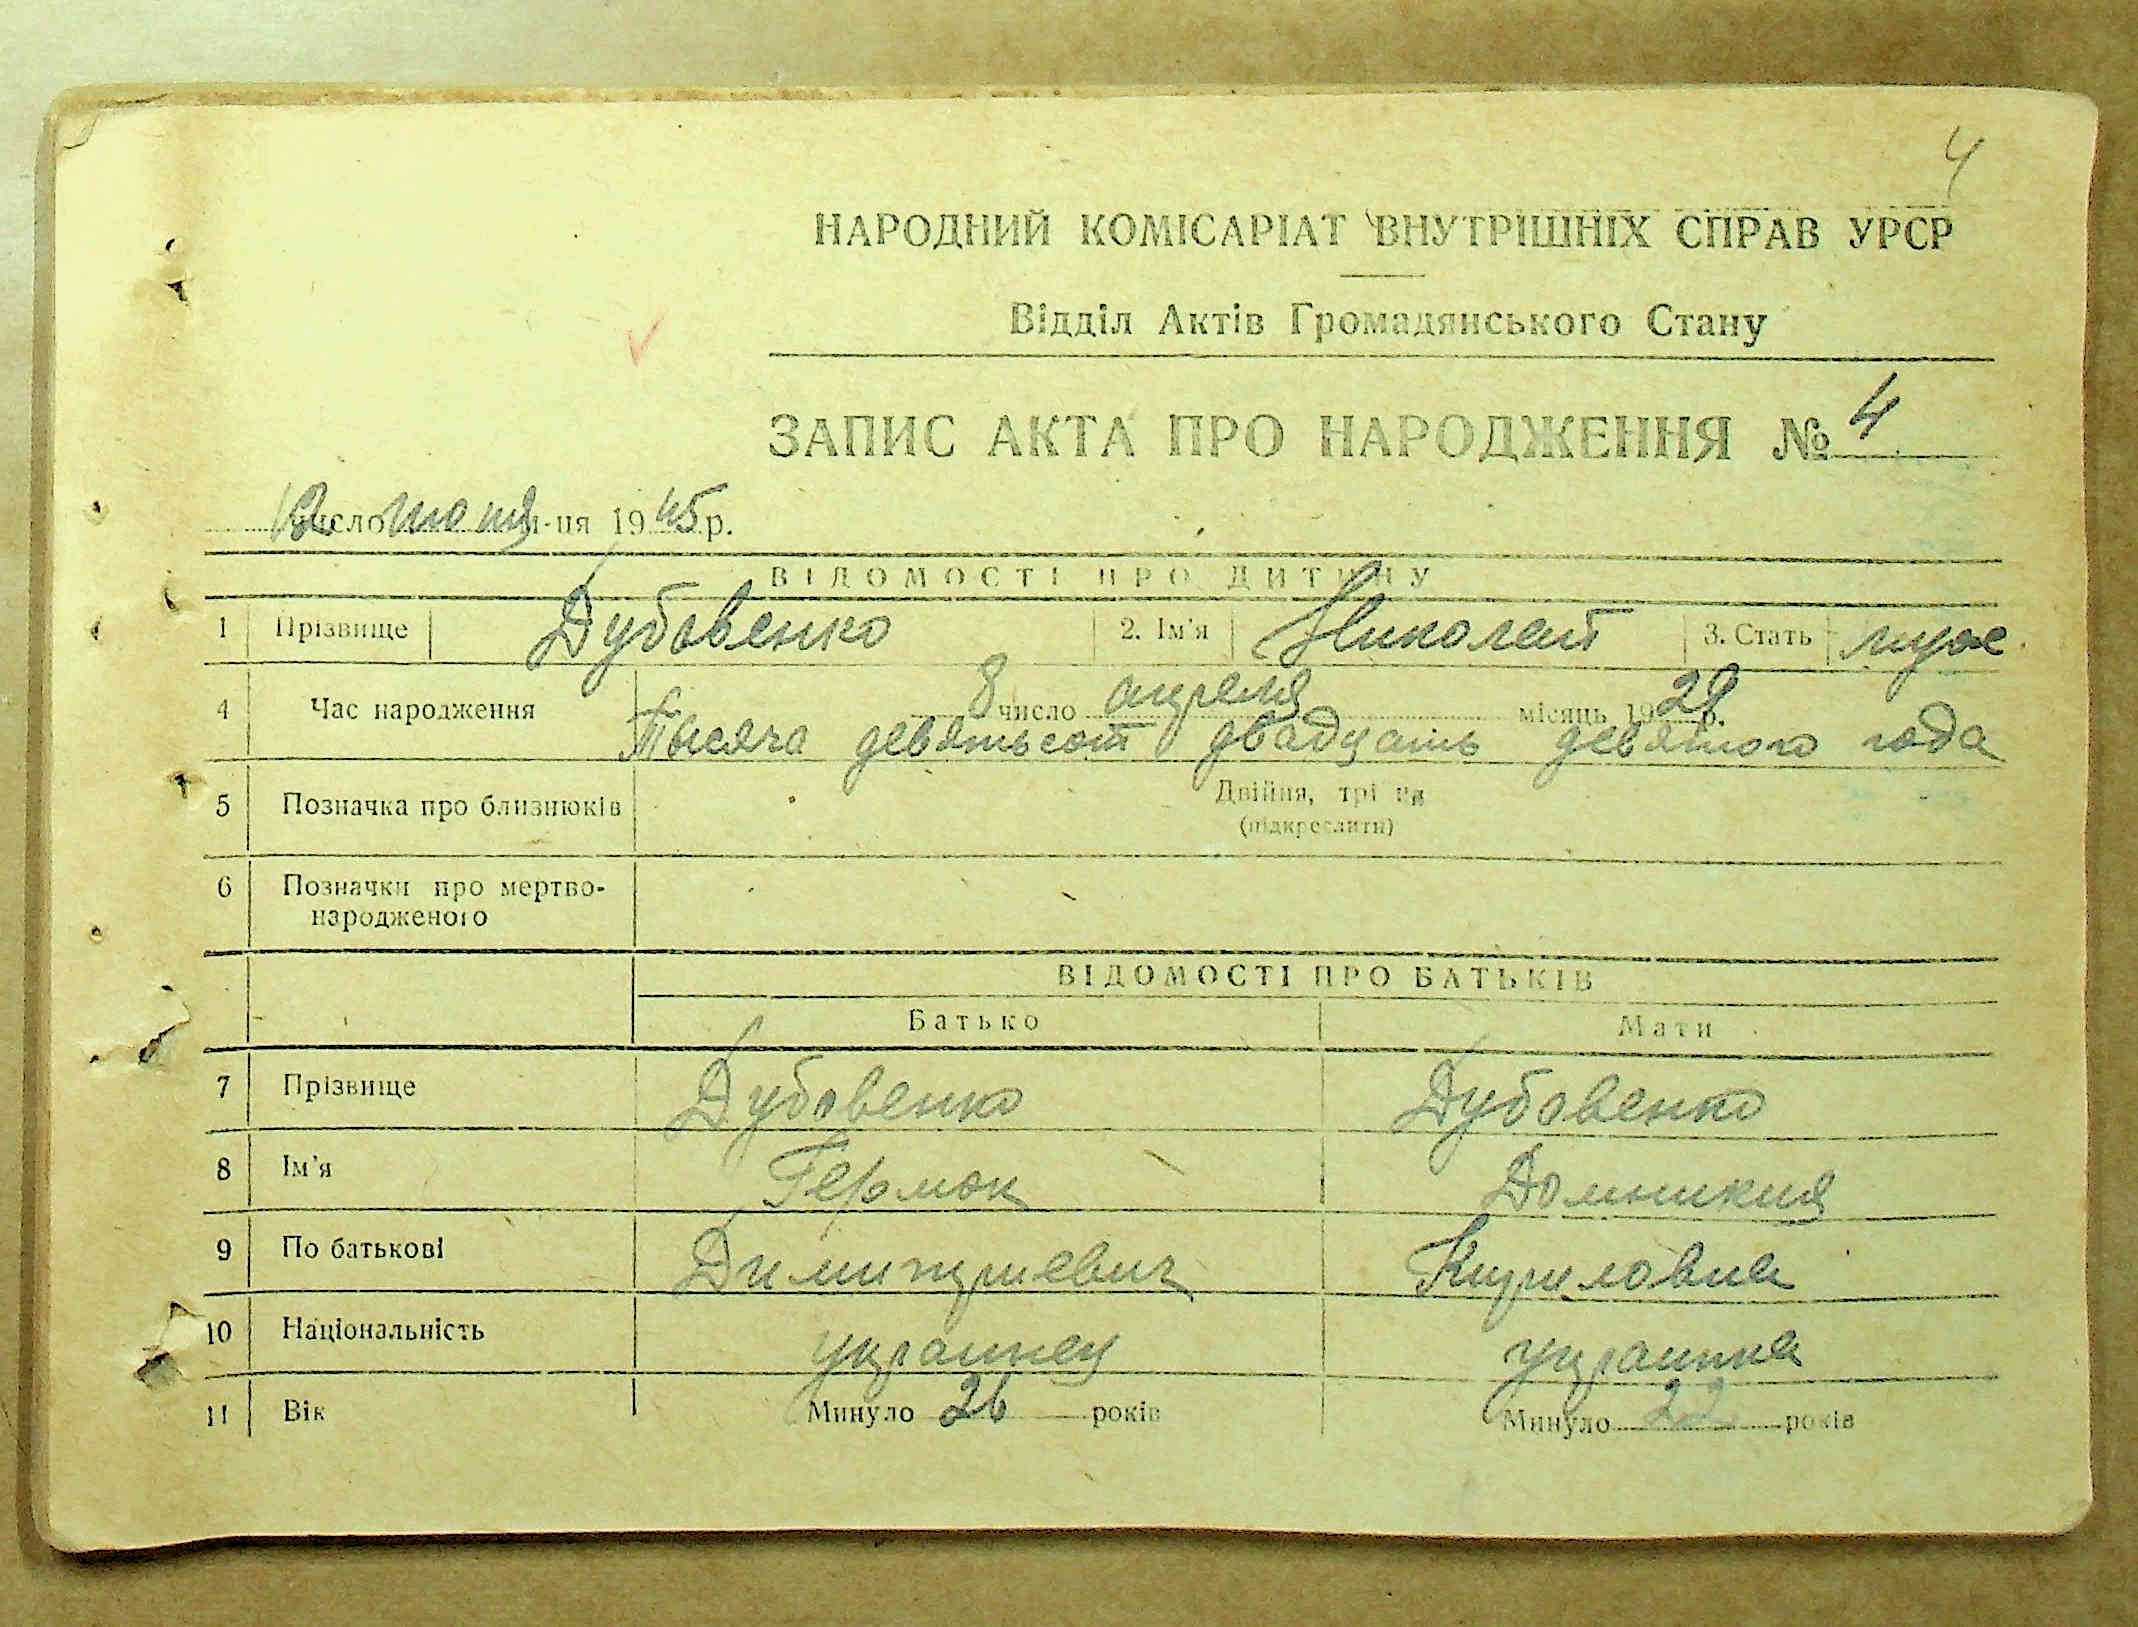 4
НАРОДНИЙ КОМІСАРІАТ ВНУТРІШНІХ СПРАВ УРСР
Відділ Актів Громадянського Стану
ЗАПИС АКТА ПРО НАРОДЖЕННЯ № 4
12 число м-ця 1945 р.
ВІДОМОСТІ ПРО ДИТИНУ
1 Прізвище Дубовенко 2. Ім'я Николай 3. Стать муж
4 Час народження 8 число апреля місяць 1929 р.
Тысяча девятьсот двадцать девятого года
5 Позначка про близнюків Двійня, трійня
(підкреслити)
6 Позначки про мертво-
народженого
ВІДОМОСТІ ПРО БАТЬКІВ
Батько Мати
7 Прізвище Дубовенко Дубовенко
8 Ім'я Герман Домникия
9 По батькові Димитриевич Кириловна
10 Національність украинец украинка
11 Вік Минуло 26 років Минуло 22 років